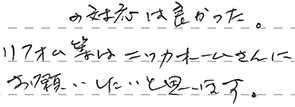 の対応は良かった。
リフォーム等はニッカホームさんに
お願いしたいと思います。